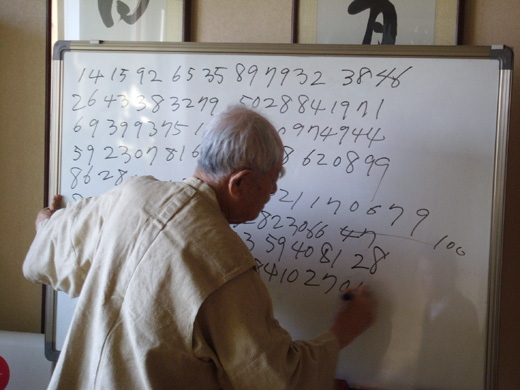 141592 6535 897932 3846
2643383279 5028841971
693993751 0974944
592307816 8 620899
8628 21170679
100
823066 47
3 59408128
8410270